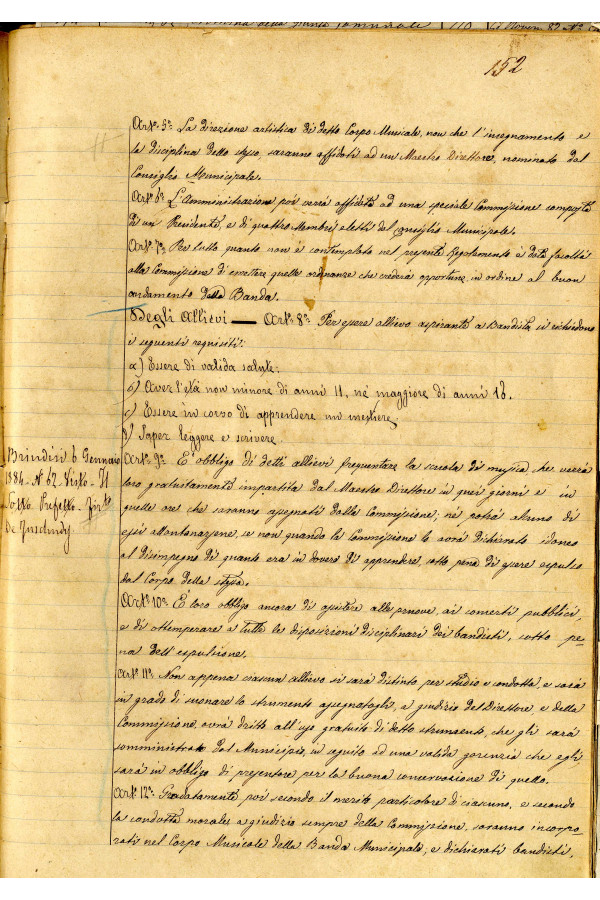 152
Art.° 5.° La direzione artistica di detto Corpo Musicale, non che l'insegnamento e
la disciplina dello stesso, saranno affidati ad un Maestro Direttore, nominato dal
Consiglio Municipale.
Art.° 6.° L'Amministrazione poi verrà affidata ad una speciale Commissione composta
di un Presidente, e di quattro Membri eletti dal Consiglio Municipale.
Art.° 7.° Per tutto quanto non è contemplato nel presente Regolamento è data facoltà
alla Commissione di emettere quelle ordinanze che crederà opportune, in ordine al buon
andamento della Banda.
Degli Allievi — Art.° 8.° Per essere allievo aspirante a Bandista si richiedono
i seguenti requisiti:
a) Essere di valida salute;
b) Aver l'età non minore di anni 11, nè maggiore di anni 18.
c) Essere in corso di apprendere un mestiere
d) Saper leggere e scrivere
Art.° 9.° È obbligo di detti allievi frequentare la scuola di musica che verrà
loro gratuitamente impartita dal Maestro Direttore in quei giorni e in
quelle ore che saranno assegnati dalla Commissione; nè potrà alcuno di
essi allontanarsene, se non quando la Commissione lo avrà dichiarato idoneo
al disimpegno di quanto era in dovere di apprendere, sotto pena di essere espulso
dal Corpo della stessa.
Art.° 10.° È loro obbligo ancora di assistere alle pruove, ai concerti pubblici,
e di ottemperare a tutte le disposizioni disciplinari dei bandisti, sotto pe-
na dell'espulsione.
Art.° 11.° Non appena ciascun allievo si sarà distinto per studio e condotta, e sarà
in grado di suonare lo strumento assegnatogli, a giudizio del Direttore e della
Commissione, avrà dritto all'uso gratuito di detto strumento, che gli sarà
somministrato dal Municipio, in seguito ad una valida garenzia che egli
sarà in obbligo di presentare per la buona conservazione di quello.
Art.° 12.° Gradatamente poi secondo il merito particolare di ciascuno, e secondo
la condotta morale, a giudizio sempre della Commissione, saranno incorpo-
rati nel Corpo Musicale della Banda Municipale, e dichiarati bandisti,
Brindisi 6 Gennaio
1884 - N. 62. Visto - Il
Prefetto -